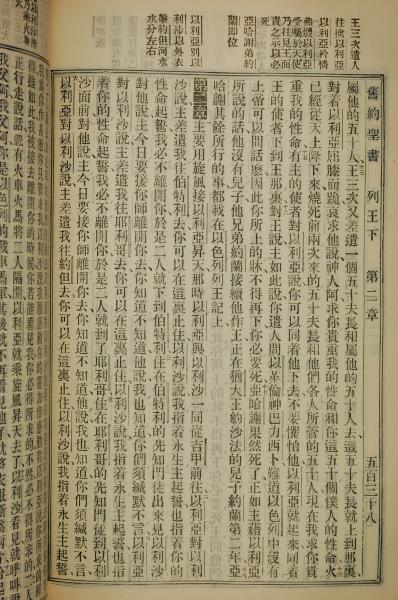 舊約聖書 列王下 第二章 五百三十八
王三次遣人
往擒以利亞
以利亞矜憐
乃往見王面
責之示以必
死
亞哈謝弟約
蘭即位
以利亞別以
利沙以外衣
擊約但河水
水分左右
屬他的五十人王三次又差遣一個五十夫長和屬他的五十人去這五十夫長就上到那裏
對着以利亞屈膝而跪哀求他說神人阿求你貴重我的性命和你這五十個僕人的性命火
已經從天上降下來燒死前兩次來的五十夫長和他們各人所管的五十人現在我求你貴
重我的性命有主的使者對以利亞說你可以同着他下去不要懼怕他以利亞就起來同着
王的使者下到王那裏對王說主如此說你遣人問以革倫神巴力西卜難道以色列中沒有
上帝可以問話麼因此你所上的牀不得再下你必要死亞哈謝果然死了正如主藉以利亞
所說的話他沒有兒子他兄弟約蘭接續他作王正在猶大王約沙法的兒子約蘭第二年亞
哈謝其餘所行的事都載在以色列列王記上
第二章主要用旋風接以利亞昇天那時以利亞與以利沙一同從吉甲前往以利亞對以利
沙說主差遣我往伯特利去你可以在這裏止住以利沙說我指着永生主起誓也指着你的
性命起誓我必不離開你於是二人就下到伯特利住在伯特利的先知門徒出來見以利沙
對他說主今日要接你師離開你去你知道不知道他說我也知道你們須緘默不言以利亞
對以利沙說主差遣我往耶利哥去你可以在這裏止住以利沙說我指着永生主起誓也指
着你的性命起誓我必不離開你於是二人就到了耶利哥住在耶利哥的先知門徒到以利
沙面前對他說主今日要接你師離開你去你知道不知道他說我也知道你們須緘默不言
以利亞對以利沙說主差遣我往約但去你可以在這裏止住以利沙說我指着永生主起誓
正行走說話忽有火車火馬將二人隔開以利亞就乘旋風昇天去了以利沙看見就呼叫說